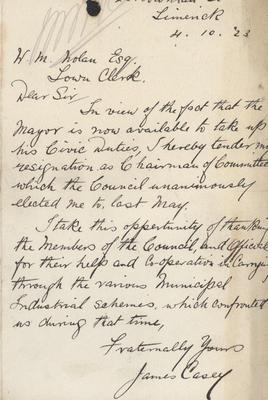 Limerick
4. 10. 23
W. M. Nolan Esq.
Town Clerk.
Dear Sir
In view of the fact that the
Mayor is now available to take up
his Civic Duties, I hereby tender my
resignation as Chairman of Committee
which the Council unanimously
elected me to, last May.
I take this opportunity of thanking
the Members of the Council, and Officials
for their help and Co-operation in Carrying
through the various Municipal
Industrial schemes, which confronted
us during that time,
Fraternally Yours
James Casey